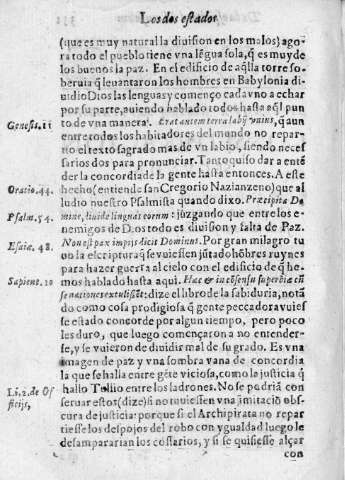 Los dos estados
(que es muy natural la diuision en los malos) ago-
ra todo el pueblo tiene vna lẽgua sola, q̃ es muy de
los buenos la paz. En el edificio de aq̃lla torre so-
beruia q̃ leuantaron los hombres en Babylonia di-
uidio Dios las lenguas y començo cada vno a echar
por su parte, auiendo hablado todos hasta aq̃l pun
Genesis. 11
to de vna manera. Erat autem terra labij vnius, q̃ aun
entre todos los habitadores del mundo no repar-
tio el texto sagrado mas de vn labio, siendo neces-
sarios dos para pronunciar. Tanto quiso dar a entẽ
der la concordia de la gente hasta entonces. A este
Oratio. 44.
hecho (entiende san Gregorio Nazianzeno) que al
ludio nuestro Psalmista quando dixo. Præcipita Do
Psalm. 54.
mine, diuide linguas eorum: juzgando que entre los e-
nemigos de Dios todo es diuision y falta de Paz.
Esaiæ. 48.
Non est pax impijs dicit Dominus. Por gran milagro tu
uo la escriptura q̃ se vuiessen jũtado hõbres ruynes
para hazer guerra al cielo con el edificio de q̃ he-
Sapient. 10
mos hablado hasta aqui. Hæc & in cõsensu superbiæ cũ
se nationes extulissẽt: dize el libro de la sabiduria, notã
do como cosa prodigiosa q̃ gente peccadora vuies
se estado concorde por algun tiempo, pero poco
les duro, que luego començaron a no entender-
se, y se vuieron de diuidir mal de su grado. Es vna
imagen de paz y vna sombra vana de concordia
la que se halla entre gẽte viciosa, como la justicia q̃
Li. 2. de Of
ficijs,
hallo Tullio entre los ladrones. No se podriã con
seruar estos (dize) si no tuuiessen vna imitaciõ obs
cura de justicia: porque si el Archipirata no repar
tiesse los despojos del robo con ygualdad luego le
desampararian los cossarios, y si se quisiesse alçar
con